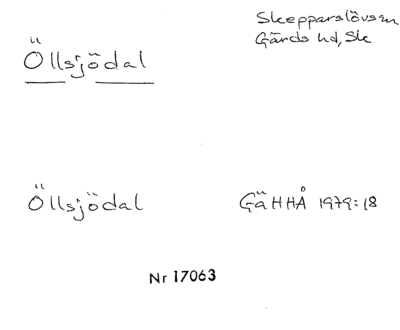 Öllsjödal
Skepparslövs sn
Gärds hd, Sk
Öllsjödal
GäHHÅ 1979:18
Nr 17063